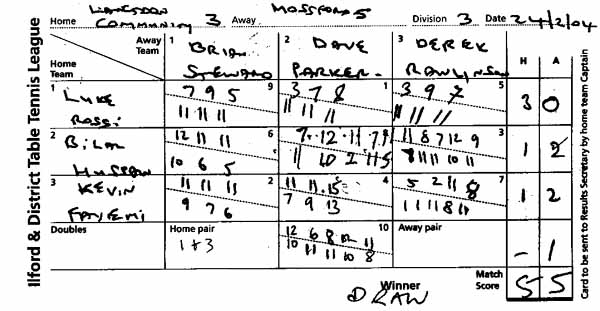 Ilford & District Table Tennis League
Home LANGDON COMMUNITY 3 Away MOSSFORD 5 Division 3 Date 24/2/04
Away Team
Home Team
1 BRIAN STEWARD
2 DAVE PARKER
3 DEREK RAWLINSON
H A
1 LUKE ROSSI
9
7 9 5
11 11 11
1
3 7 8
11 11 11
5
3 9 7
11 11 11
3 0
2 BILAL HUSSAIN
6
12 11 11
10 6 5
8
7 12 11 7 9
11 10 2 11 5
3
11 8 7 12 9
8 11 11 10 11
1 2
3 KEVIN FAYEMI
2
11 11 11
9 7 6
4
11 11 15
7 9 13
7
5 2 11 8
11 11 8 11
1 2
Doubles
Home pair
1+3
10
12 6 8 12 11
10 11 11 10 8
Away pair
- 1
Winner
DRAW
Match Score
5 5
Card to be sent to Results Secretary by home team Captain